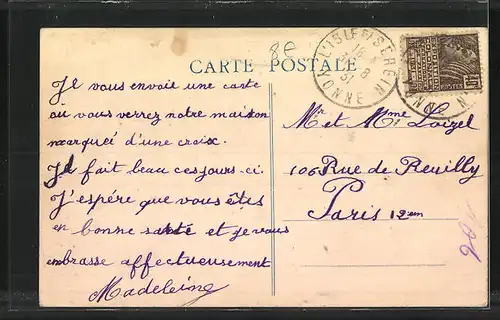 8E
CARTE POSTALE
L'ISLE S/ SEREIN
16
8
31
YONNE
POSTES
Je vous envoie une carte
où vous verrez notre maison
marqueé d'une croix.
Il fait beau ces jours-ci.
J'espére que vous êtes
en bonne santé et je vous
embrasse affectueusement
Madeleine
Mr et Mme Loizel
106 Rue de Reuilly
Paris 12em